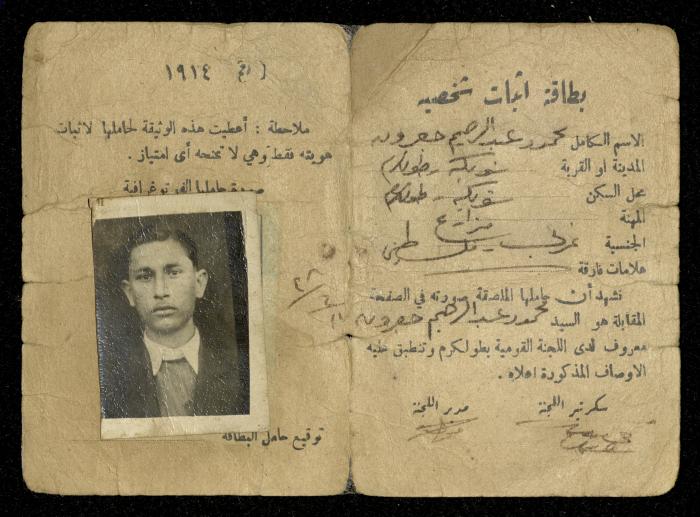 بطاقة اثبات شخصيه
الاسم الكامل محمود عبد الرحيم
المدينة او القرية شويكه - طولكرم
محل السكن شويكه - طولكرم
المهنة مزارع
الجنسية عربي فلسطيني
علامات فارقة
نشهد أن حاملها الملصقة صورته في الصفحة
المقابلة هو السيد محمود عبد الرحيم
معروف لدى اللجنة القومية بطولكرم وتنطبق عليه
الاوصاف المذكورة اعلاه .
سكرتير اللجنة
مدير اللجنة
رقم ١٩١٤
ملاحظة : أعطيت هذه الوثيقة لحاملها لاثبات
هويته فقط وهي لا تمنحه أى امتياز .
صورة حاملها الفوتوغرافية
توقيع حامل البطاقه